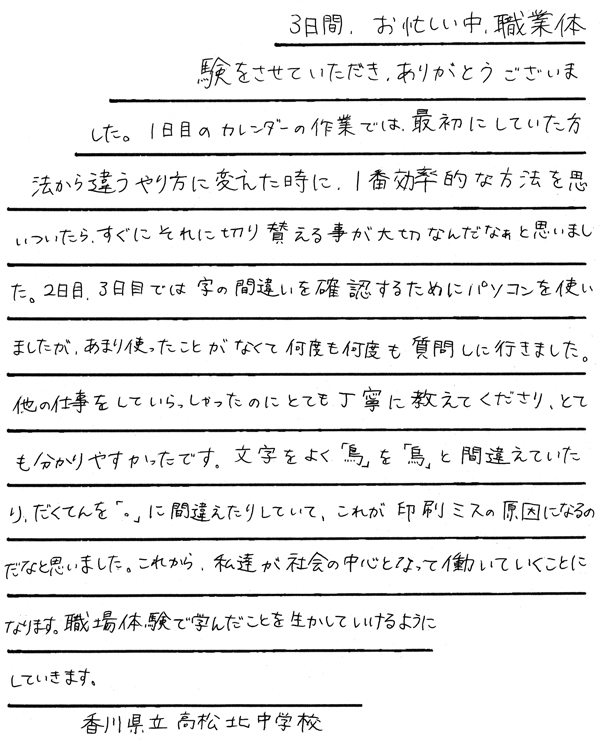 3日間、お忙しい中、職業体
験をさせていただき、ありがとうございま
した。1日目のカレンダーの作業では、最初にしていた方
法から違うやり方に変えた時に、1番効率的な方法を思
いついたら、すぐにそれに切り賛える事が大切なんだなぁと思いまし
た。2日目、3日目では字の間違いを確認するためにパソコンを使い
ましたが、あまり使ったことがなくて何度も何度も質問しに行きました。
他の仕事をしていらっしゃったのにとても丁寧に教えてくださり、とて
も分かりやすかったです。文字をよく「鳥」を「烏」と間違えていた
り、だくてんを「。」に間違えたりしていて、これが印刷ミスの原因になるの
だなと思いました。これから、私達が社会の中心となって働いていくことに
なります。職場体験で学んだことを生かしていけるように
していきます。
香川県立高松北中学校